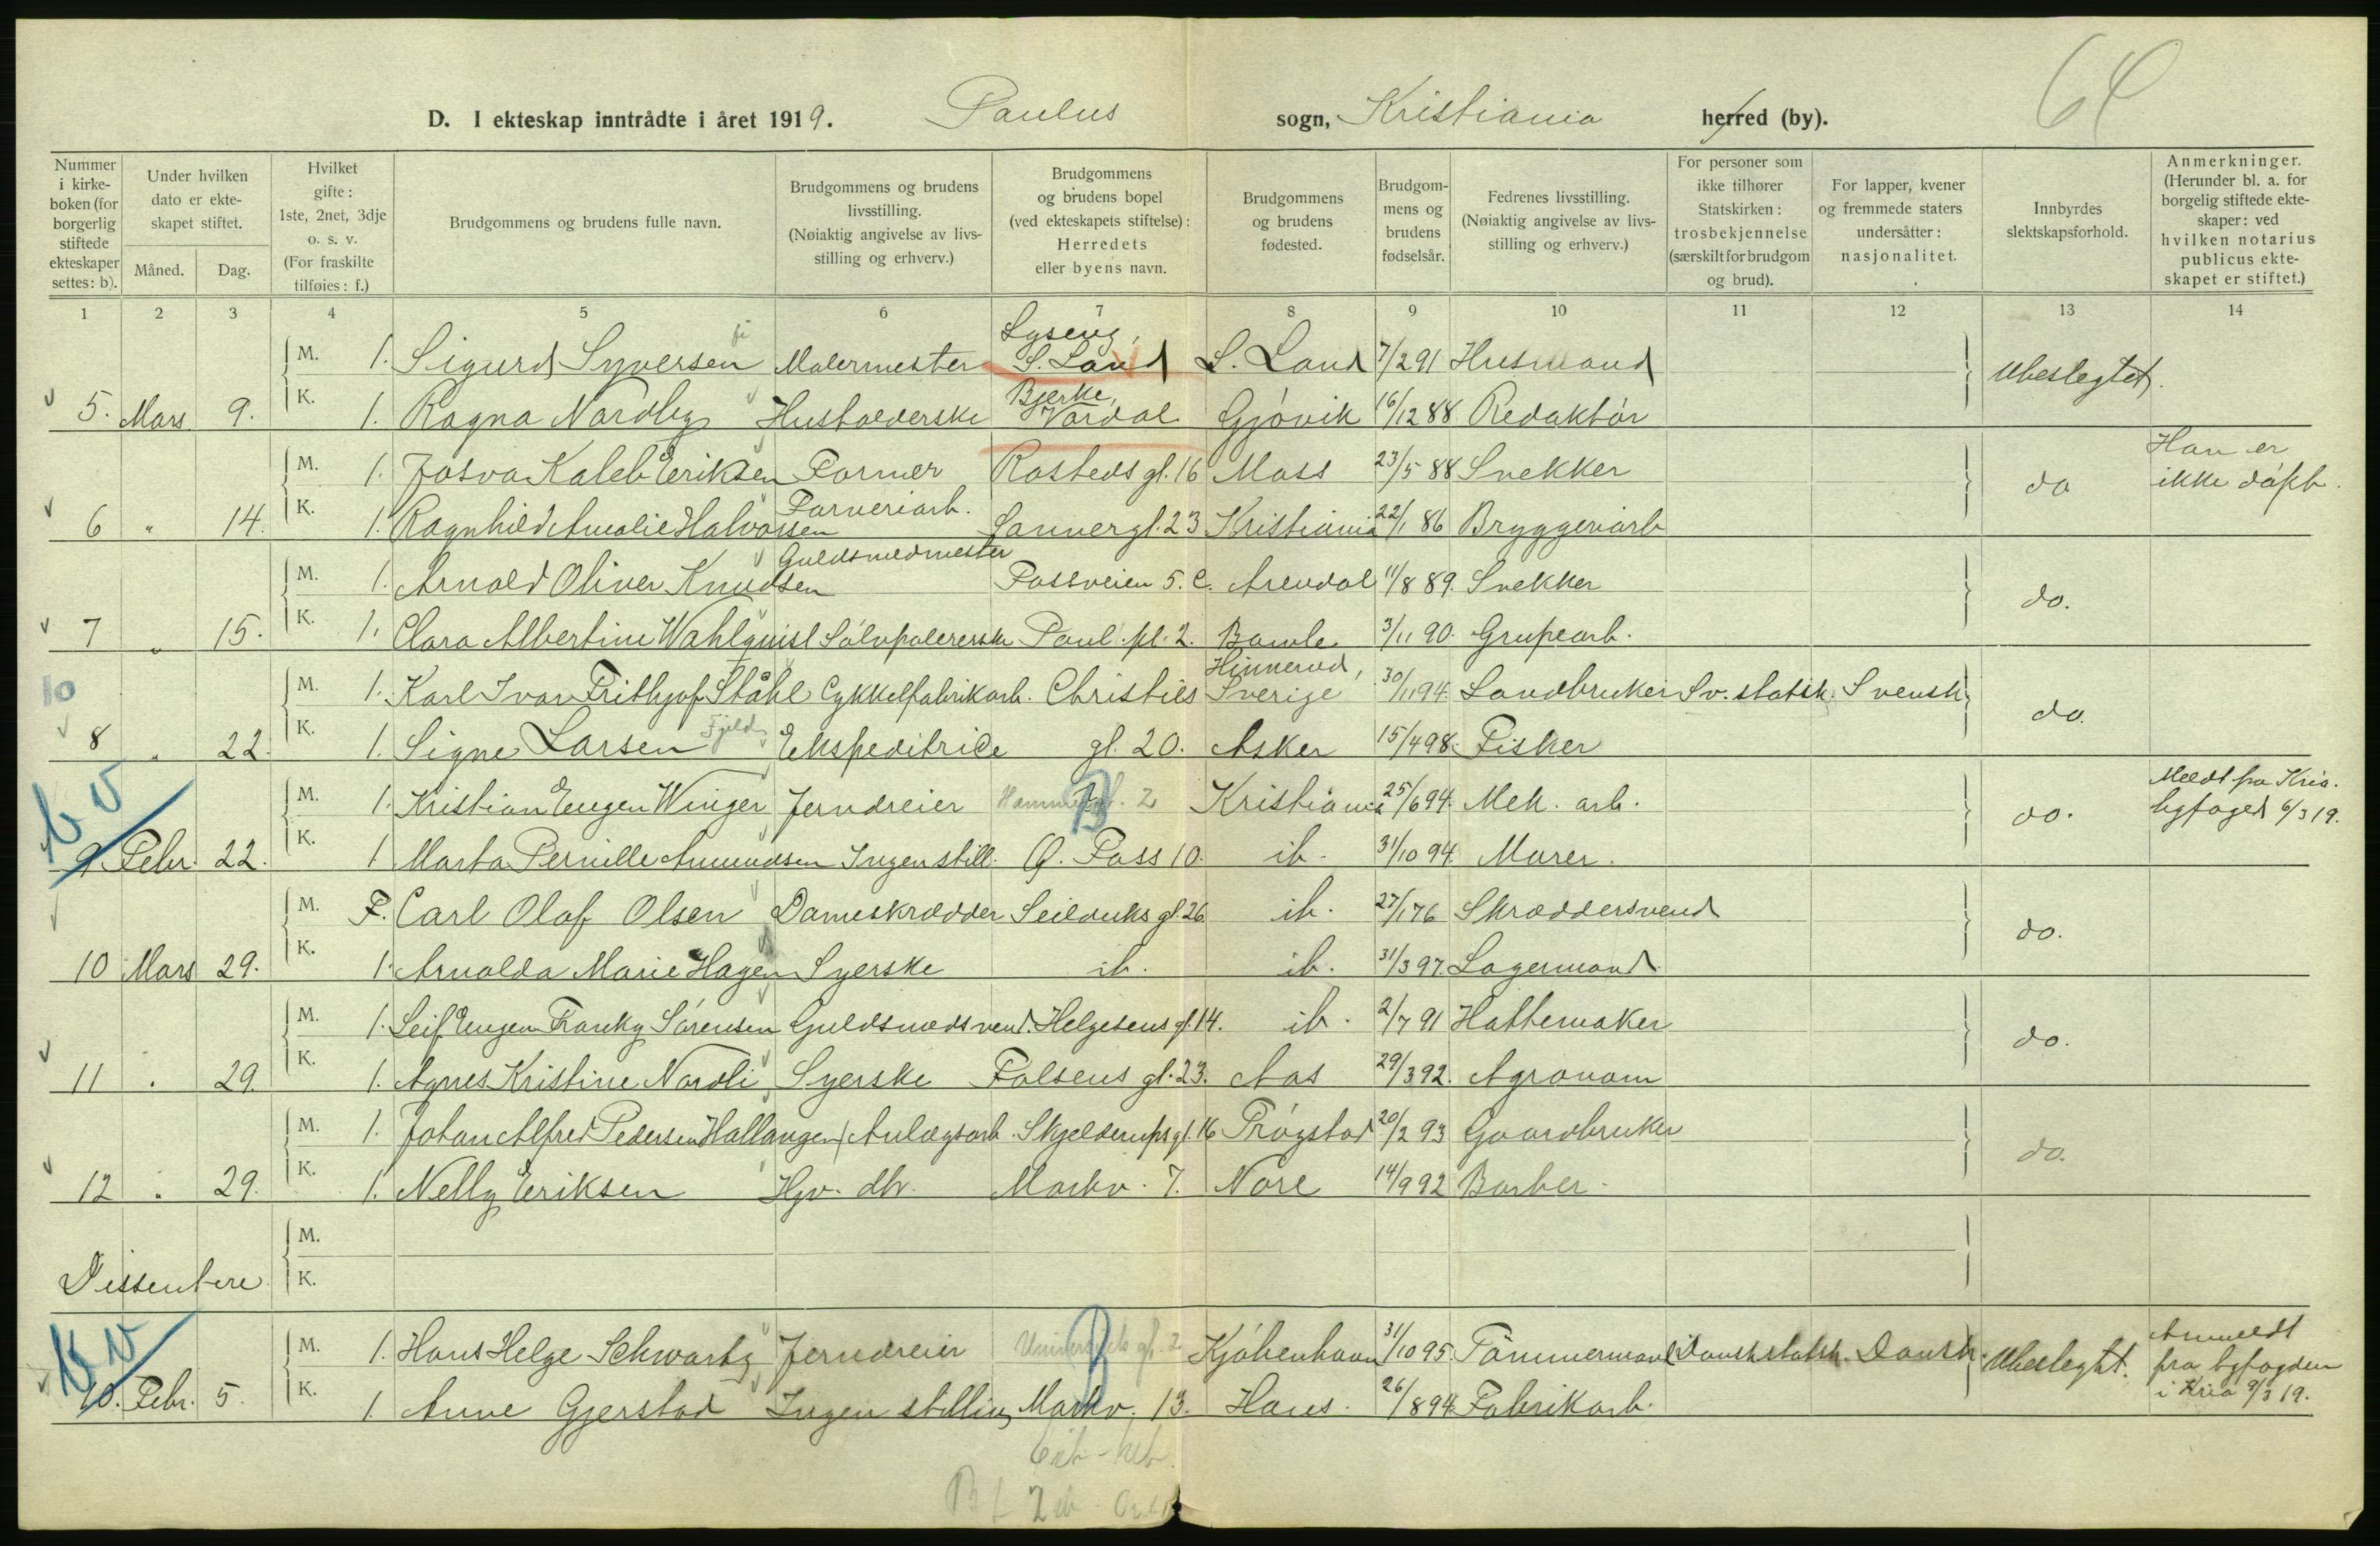 64
D. I ekteskap inntrådte i året 1919. Paulus sogn, Kristiania herred (by).
Nummer i kirkeboken (for borgerlig stiftede ekteskaper settes: b).
Under hvilken dato er ekteskapet stiftet.
Måned. Dag.
Hvilket gifte: 1ste, 2net, 3dje o. s. v. (For fraskilte tilføies: f.)
Brudgommens og brudens fulle navn.
Brudgommens og brudens livsstilling. (Nøiaktig angivelse av livsstilling og erhverv.)
Brudgommens og brudens bopel (ved ekteskapets stiftelse): Herredets eller byens navn.
Brudgommens og brudens fødested.
Brudgommens og brudens fødselsår.
Fedrenes livsstilling. (Nøiaktig angivelse av livsstilling og erhverv.)
For personer som ikke tilhører Statskirken: trosbekjennelse (særskilt for brudgom og brud).
For lapper, kvener og fremmede staters undersåtter: nasjonalitet.
Innbyrdes slektskapsforhold.
Anmerkninger. (Herunder bl. a. for borgelig stiftede ekteskaper: ved hvilken notarius publicus ekteskapet er stiftet.)
1 2 3 4 5 6 7 8 9 10 11 12 13 14
M. 1. Sigurd Syversen Malermester Lyseng, S. Land S. Land 7/2 91 Husmand Ubeslegtet.
5. Mars 9. K. 1. Ragna Nordby Husholderske Bjerke, Vardal Gjøvik 16/12 88 Redaktør
M. 1. Josva Kaleb Eriksen Former Rosteds gt. 16 Moss 23/5 88 Snekker do Han er ikke døpt.
6 " 14. K. 1. Ragnhild Amalie Halvorsen Farveriarb. Sannergt. 23 Kristiania 22/1 86 Bryggeriarb
M. 1. Arnold Oliver Knudsen Guldsmedmester Fossveien 5. C. Arendal 11/8 89. Snekker do.
7 " 15. K. 1. Clara Albertine Wahlquist Sølvpolererske Paul. pl. 2. Bamle 3/11 90. Grupearb.
10
M. 1. Karl Ivar Frithjof Ståhl Cykkelfabrikarb. Christies Hinnerud, Sverige 30/11 94. Landbruker Sv. statsk. Svensk do.
8 " 22. K. 1. Signe Larsen Fjeld Ekspeditrice gt. 20. Asker 15/4 98. Fisker
M. 1. Kristian Eugen Winger Jerndreier Kristiania 25/6 94. Mek. arb. do. Meldt fra Kria. byfoged 6/3 19.
9 Febr. 22. K. 1 Marta Pernille Amundsen Ingen still. Ø. Foss 10. ib. 31/10 94. Murer.
M. F. Carl Olaf Olsen Dameskrædder Seilduks gt. 26 ib. 27/1 76 Skræddersvend do.
10 Mars 29. K. 1. Arnolda Marie Hagen Syerske ib. ib. 31/3 97. Lagermand.
M. 1. Leif Eugen Franky Sørensen Guldsmedsvend. Helgesens gt. 14. ib. 2/7 91 Hattemaker do.
11 " 29. K. 1. Agnes Kristine Nordli Syerske Falsens gt. 23. Aas 29/3 92. Agronom
M. 1. Johan Alfred Pedersen Hallangen Anlægsarb. Skjelderups gt. 16 Trøgstad 20/2 93 Gaardbruker do.
12 " 29. K. 1. Nelly Eriksen Hjv. dtr. Markv. 7. Nore 14/9 92 Barber.
M.
Dissentere K.
M. 1. Hans Helge Schwartz Jerndreier Kjøbenhavn 31/10 95. Tømmermand Dansk statsk. Dansk. Ubeslegtet. Anmeldt fra byfogden i Kria 9/3 19.
10. Febr. 5. K. 1. Anne Gjerstad Ingen stilling Markv. 13. Haus. 26/8 94. Fabrikarb.